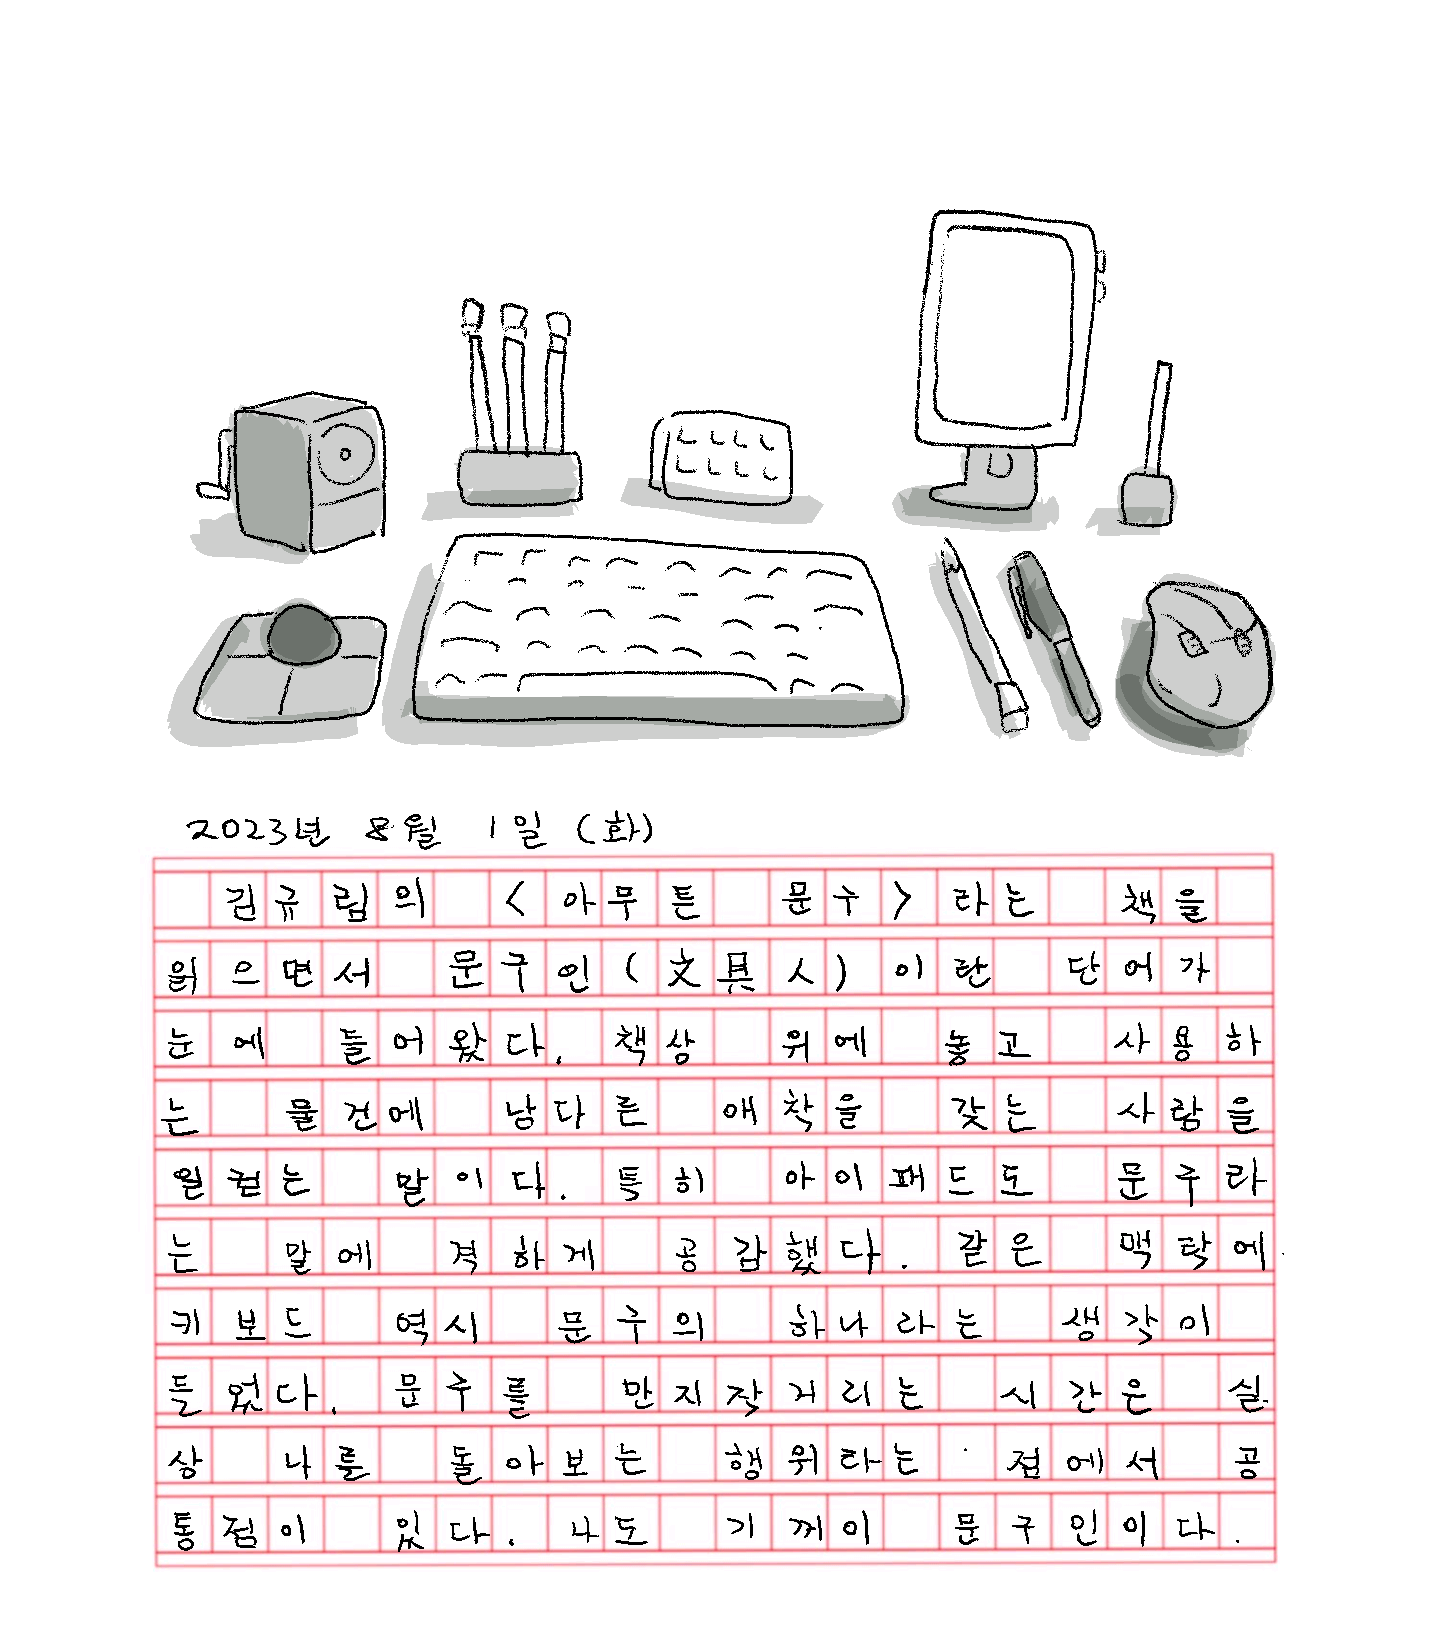 2023년 8월 1일 (화)
김규림의 <아무튼 문구>라는 책을
읽으면서 문구인(文具人)이란 단어가
눈에 들어왔다. 책상 위에 놓고 사용하
는 물건에 남다른 애착을 갖는 사람을
일컫는 말이다. 특히 아이패드도 문구라
는 말에 격하게 공감했다. 같은 맥락에
키보드 역시 문구의 하나라는 생각이
들었다. 문구를 만지작거리는 시간은 실
상 나를 돌아보는 행위라는 점에서 공
통점이 있다. 나도 기꺼이 문구인이다.